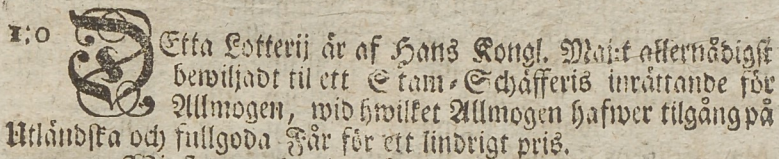 1:o DEtta Lotterij är af Hans Kongl. Maj:t allernådigst
bewiljadt til ett Stam-Schäfferis inrättande för
Allmogen, wid hwilket Allmogen hafwer tilgång på
Utländska och fullgoda Får för ett lindrigt pris.